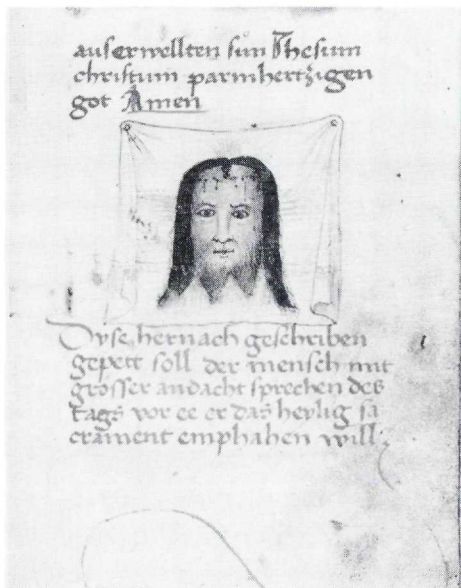 auserwellten sun Jhesum
christum parmhertzigen
got Amen
Dyse hernach geschriben
gepett soll der mensch mit
grosser andacht sprechen des
tags vor ee er das heylig sa
crament emphahen will